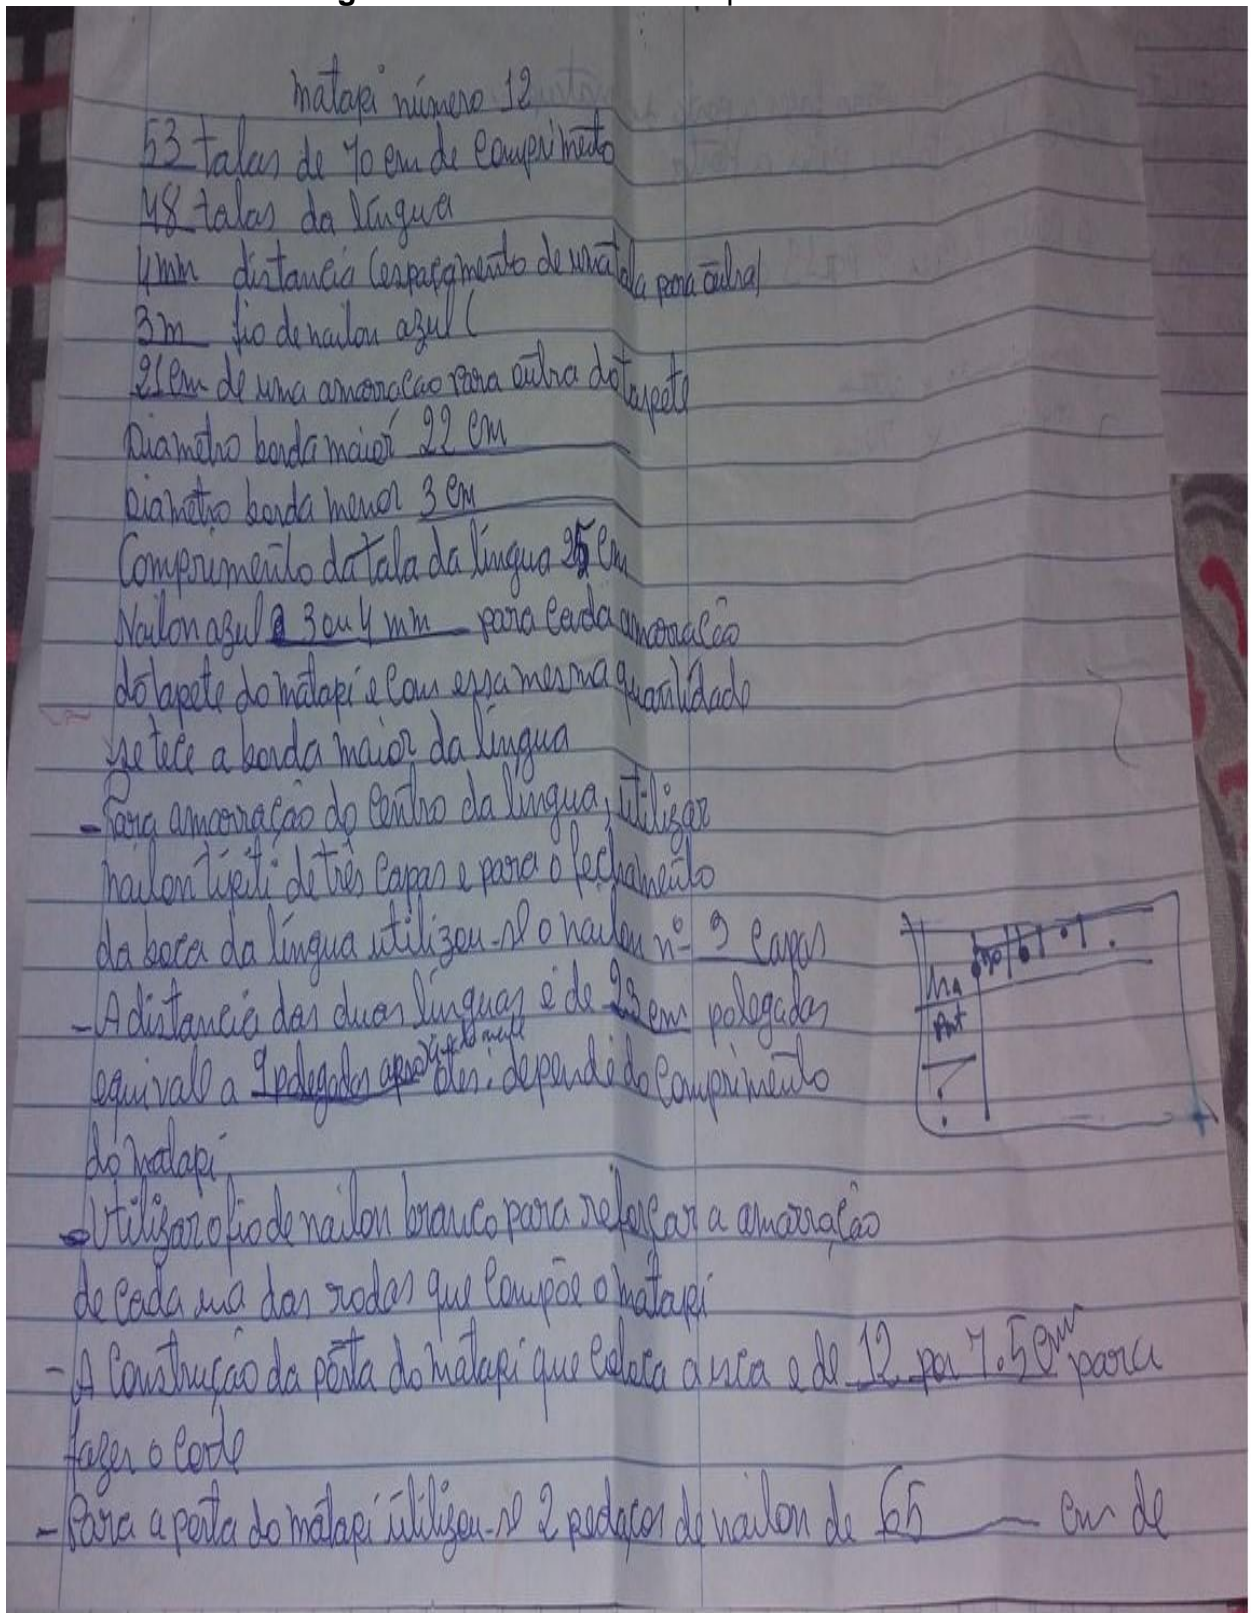 matapi número 12
53 talas de 70 cm de comprimeto
48 talas da língua
4mm distancia (espaçamento de uma tala para outra)
3m fio de nailon azul (
21cm de uma amarracao para outra do tapete
Diametro borda maior 22 cm
Diametro borda menor 3 cm
Comprimento da tala da língua 25 cm
Nailon azul 3 ou 4 mm para cada amarração
do tapete do matapi e com essa mesma quantidade
se tece a borda maior da língua
- Para amarração do centro da língua, utilizar
nailon tipiti de três capas e para o fechamento
da boca da língua utilizou-se o nailon nº 9 capas
- A distancia das duas línguas é de 23 cm polegadas
equivale a 9 polegadas aproximadamente depende do comprimento
do matapi
- Utilizar o fio de nailon branco para reforçar a amarração
de cada uma das rodas que compõe o matapi
- A construção da porta do matapi que coloca a isca e de 12 por 7.5 cm para
fazer o corte
- Para a porta do matapi utilizou-se 2 pedaços de nailon de 65 cm de